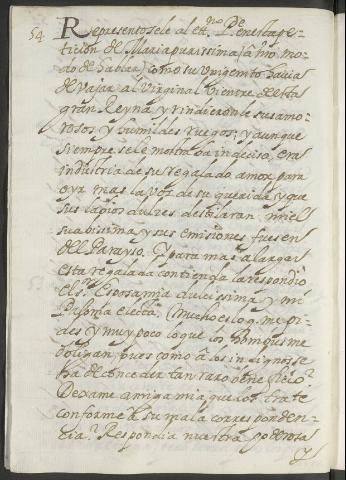 54
Representosele al etno. Pe. en esta pe-
ticion de Maria purissima (a nro mo-
do de hablar) como su Unigenito havia
de vajar al Virginal vientre de esta
gran Reyna, y rindieronle sus amo-
rosos y humildes ruegos; y aunque
siempre se le mostraba indeciso, era
industria de su regalado amor para
oyr mas la voz de su querida y que
sus labios dulzes destilaran miel
suavissima y sus emisiones fuesen
del Parayso. Y para mas alargar
esta regalada contienda la respondio
el Sr. Esposa mia dulcissima y mi
Paloma electa, Mucho es lo q. me pi-
des y muy poco lo que los hombres me
obligan, pues como a los indignos se
ha de conceder tan raro beneficio?
Dexame amiga mia que los trate
conforme a su mala correspondên-
cia? Respondia nuestra poderosa
y